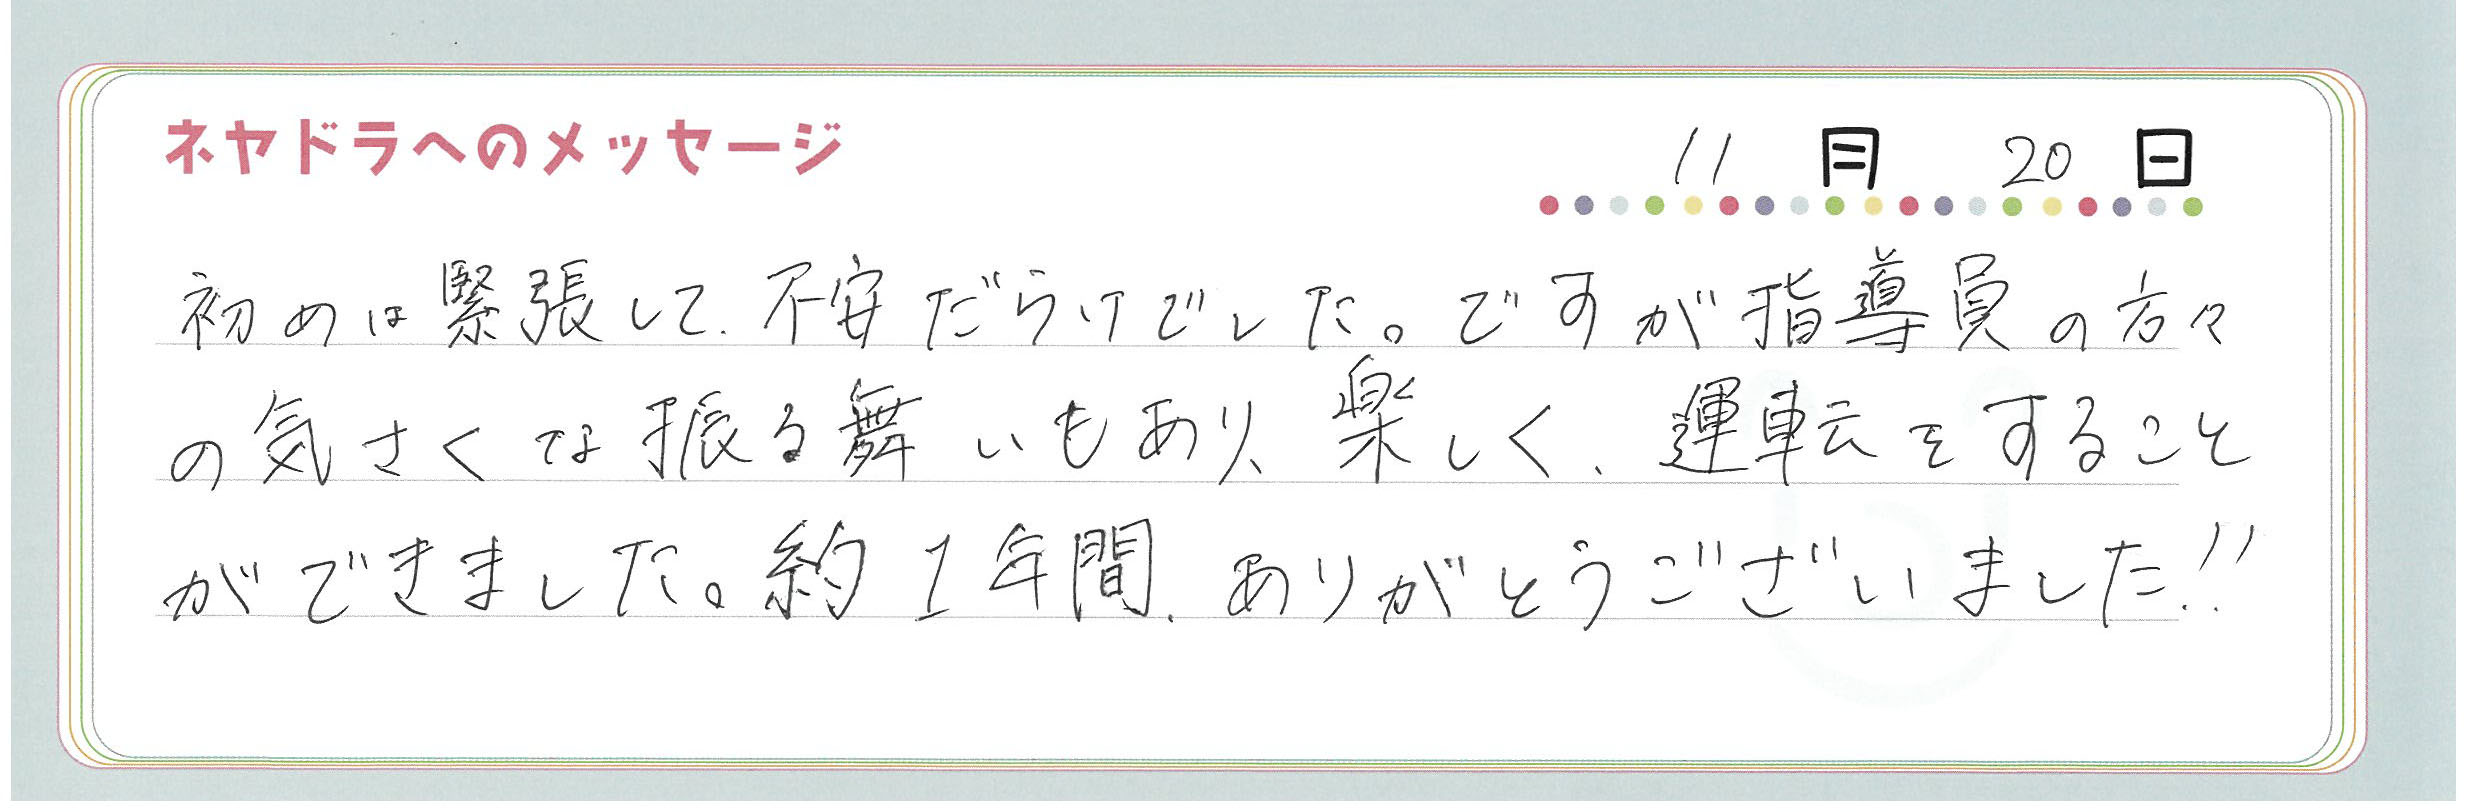 ネヤドラへのメッセージ
11月20日
初めは緊張して、不安だらけでした。ですが指導員の方々
の気さくな振る舞いもあり、楽しく、運転をすること
ができました。約1年間、ありがとうございました!!